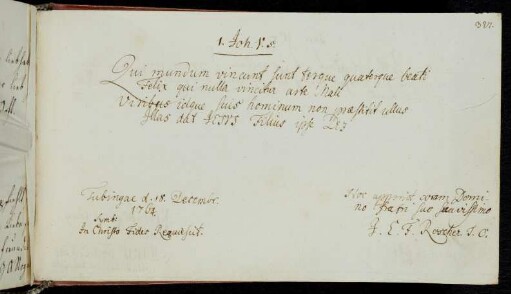 387.
1. Joh. V. 5.
Qui mundum vincunt sunt terque quaterque beati
Felix qui nulla vincitur arte Mali
Viribus idque suis hominum non præstitit ullus
Illas dat JESUS Filius ipse DEI
Tubingae d. 18. Decembr.
1764
Symb:
In Christo Fides Requiescit.
Hoc apposuit coram Domi-
no Fratri suo suavissimo
J. E. F.